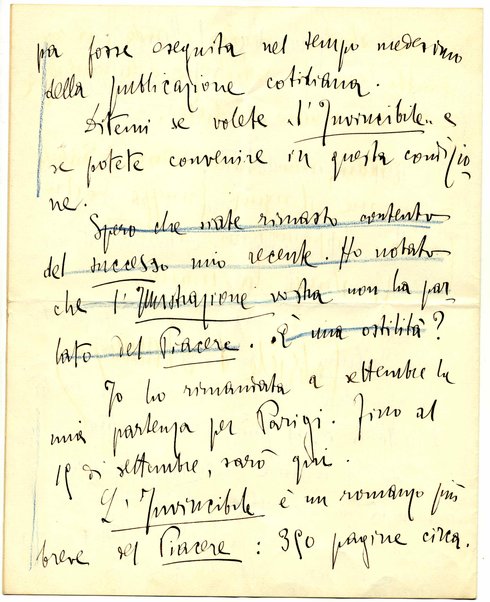 pa forse eseguita nel tempo medesimo
della pubblicazione cotidiana.
Ditemi se volete "l'Invincibile" e
se potete convenire in questa condizio-
ne.
Spero che siate rimasto contento
del successo mio recente. Ho notato
che l'Illustrazione vostra non ha par-
lato del Piacere. È una ostilità?
Io ho rimandata a settembre la
mia partenza per Parigi. Fino al
15 di settembre, sarò qui.
L'Invincibile è un romanzo più
breve del Piacere: 350 pagine circa.